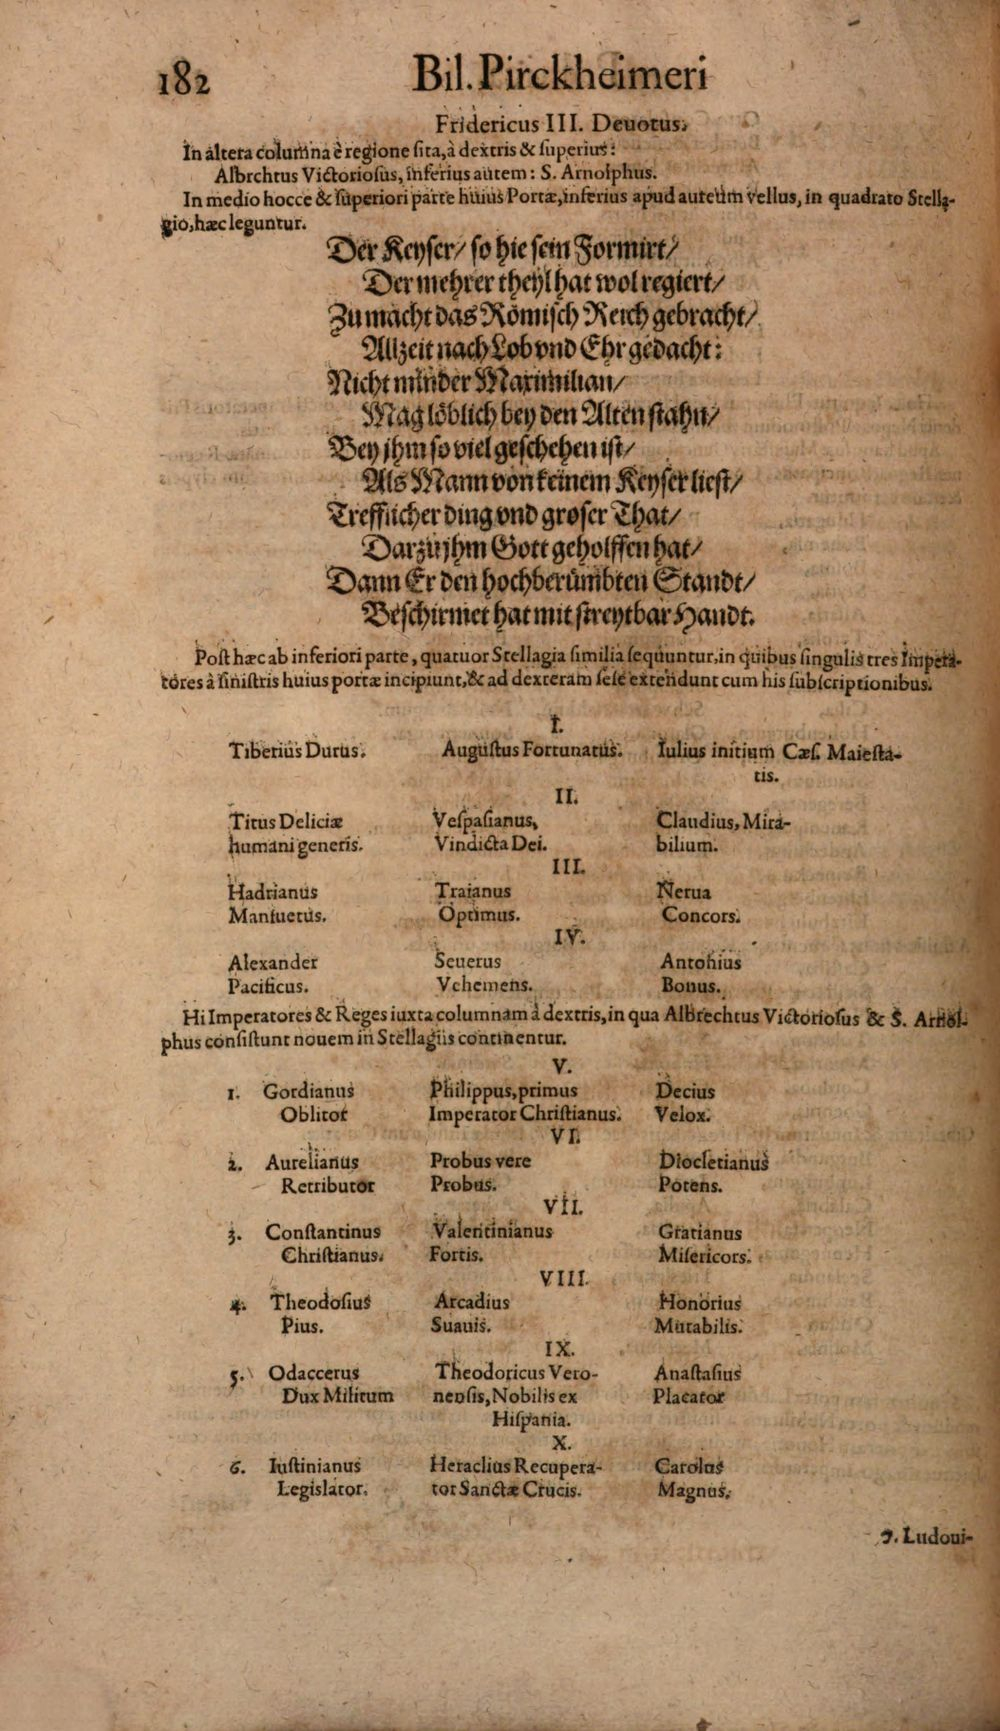 182 Bil. Pirckheimeri
Fridericus III. Deuotus.
In altera columna è regione sita, à dextris & superius:
Albrchtus Victoriosus, inferius autem: S. Arnolphus.
In medio hocce & superiori parte huius Portæ, inferius apud aureum vellus, in quadrato Stellagio, hæc leguntur.
Der Keyser/ so hie sein Formirt/
Der mehrer theyl hat wol regiert/
Zu macht das Römisch Reich gebracht/
Allzeit nach Lob vnd Ehr gedacht:
Nicht minder Maximilian/
Mag löblich bey den Alten stahn/
Bey jhm so viel geschehen ist/
Als Mann von keinem Keyser liest/
Trefflicher ding vnd groser That/
Darzu jhm Gott geholffen hat/
Dann Er den hochberůmbten Standt/
Beschirmet hat mit streytbar Handt.
Post hæc ab inferiori parte, quatuor Stellagia similia sequuntur, in quibus singulis tres Impera-
tores à sinistris huius portæ incipiunt, & ad dexteram sese extendunt cum his subscriptionibus.
I.
Tiberius Durus. Augustus Fortunatus. Iulius initium Cæs. Maiesta-
tis.
II.
Titus Deliciæ Vespasianus, Claudius, Mira-
humani generis. Vindicta Dei. bilium.
III.
Hadrianus Traianus Nerua
Mansuetus. Optimus. Concors.
IV.
Alexander Seuerus Antonius
Pacificus. Vehemens. Bonus.
Hi Imperatores & Reges iuxta columnam à dextris, in qua Albrechtus Victoriosus & S. Arnol-
phus consistunt nouem in Stellagiis continentur.
V.
1. Gordianus Philippus, primus Decius
Oblitor Imperator Christianus. Velox.
VI.
2. Aurelianus Probus vere Diocletianus
Retributor Probus. Potens.
VII.
3. Constantinus Valentinianus Gratianus
Christianus. Fortis. Misericors.
VIII.
4. Theodosius Arcadius Honorius
Pius. Suauis. Mutabilis.
IX.
5. Odaccerus Theodoricus Vero- Anastasius
Dux Militum nensis, Nobilis ex Placator
Hispania.
X.
6. Iustinianus Heraclius Recupera- Carolus
Legislator. tor Sanctæ Crucis. Magnus.
7. Ludoui-